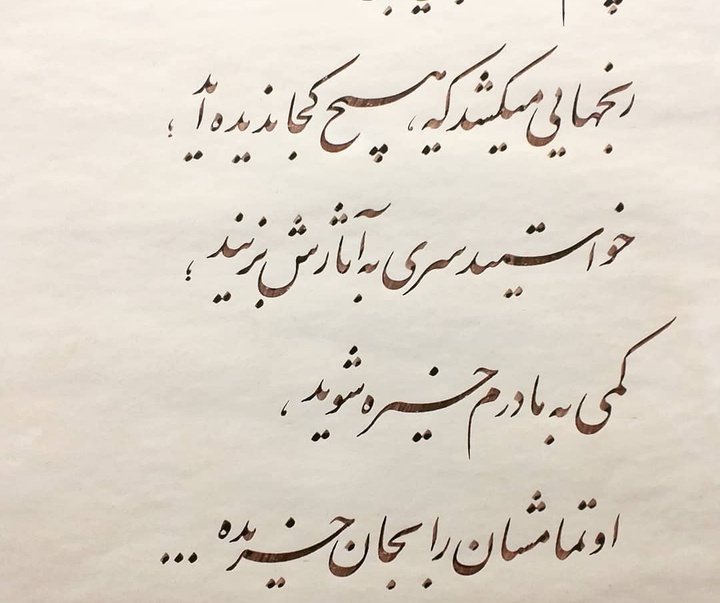 رنجهایی میکشد که، هیچ کجا ندیده اید ؛
خواستید سری به آثارش بزنید ؛
کمی به مادرم خیره شوید ،
او تمامشان را بجان خریده ...